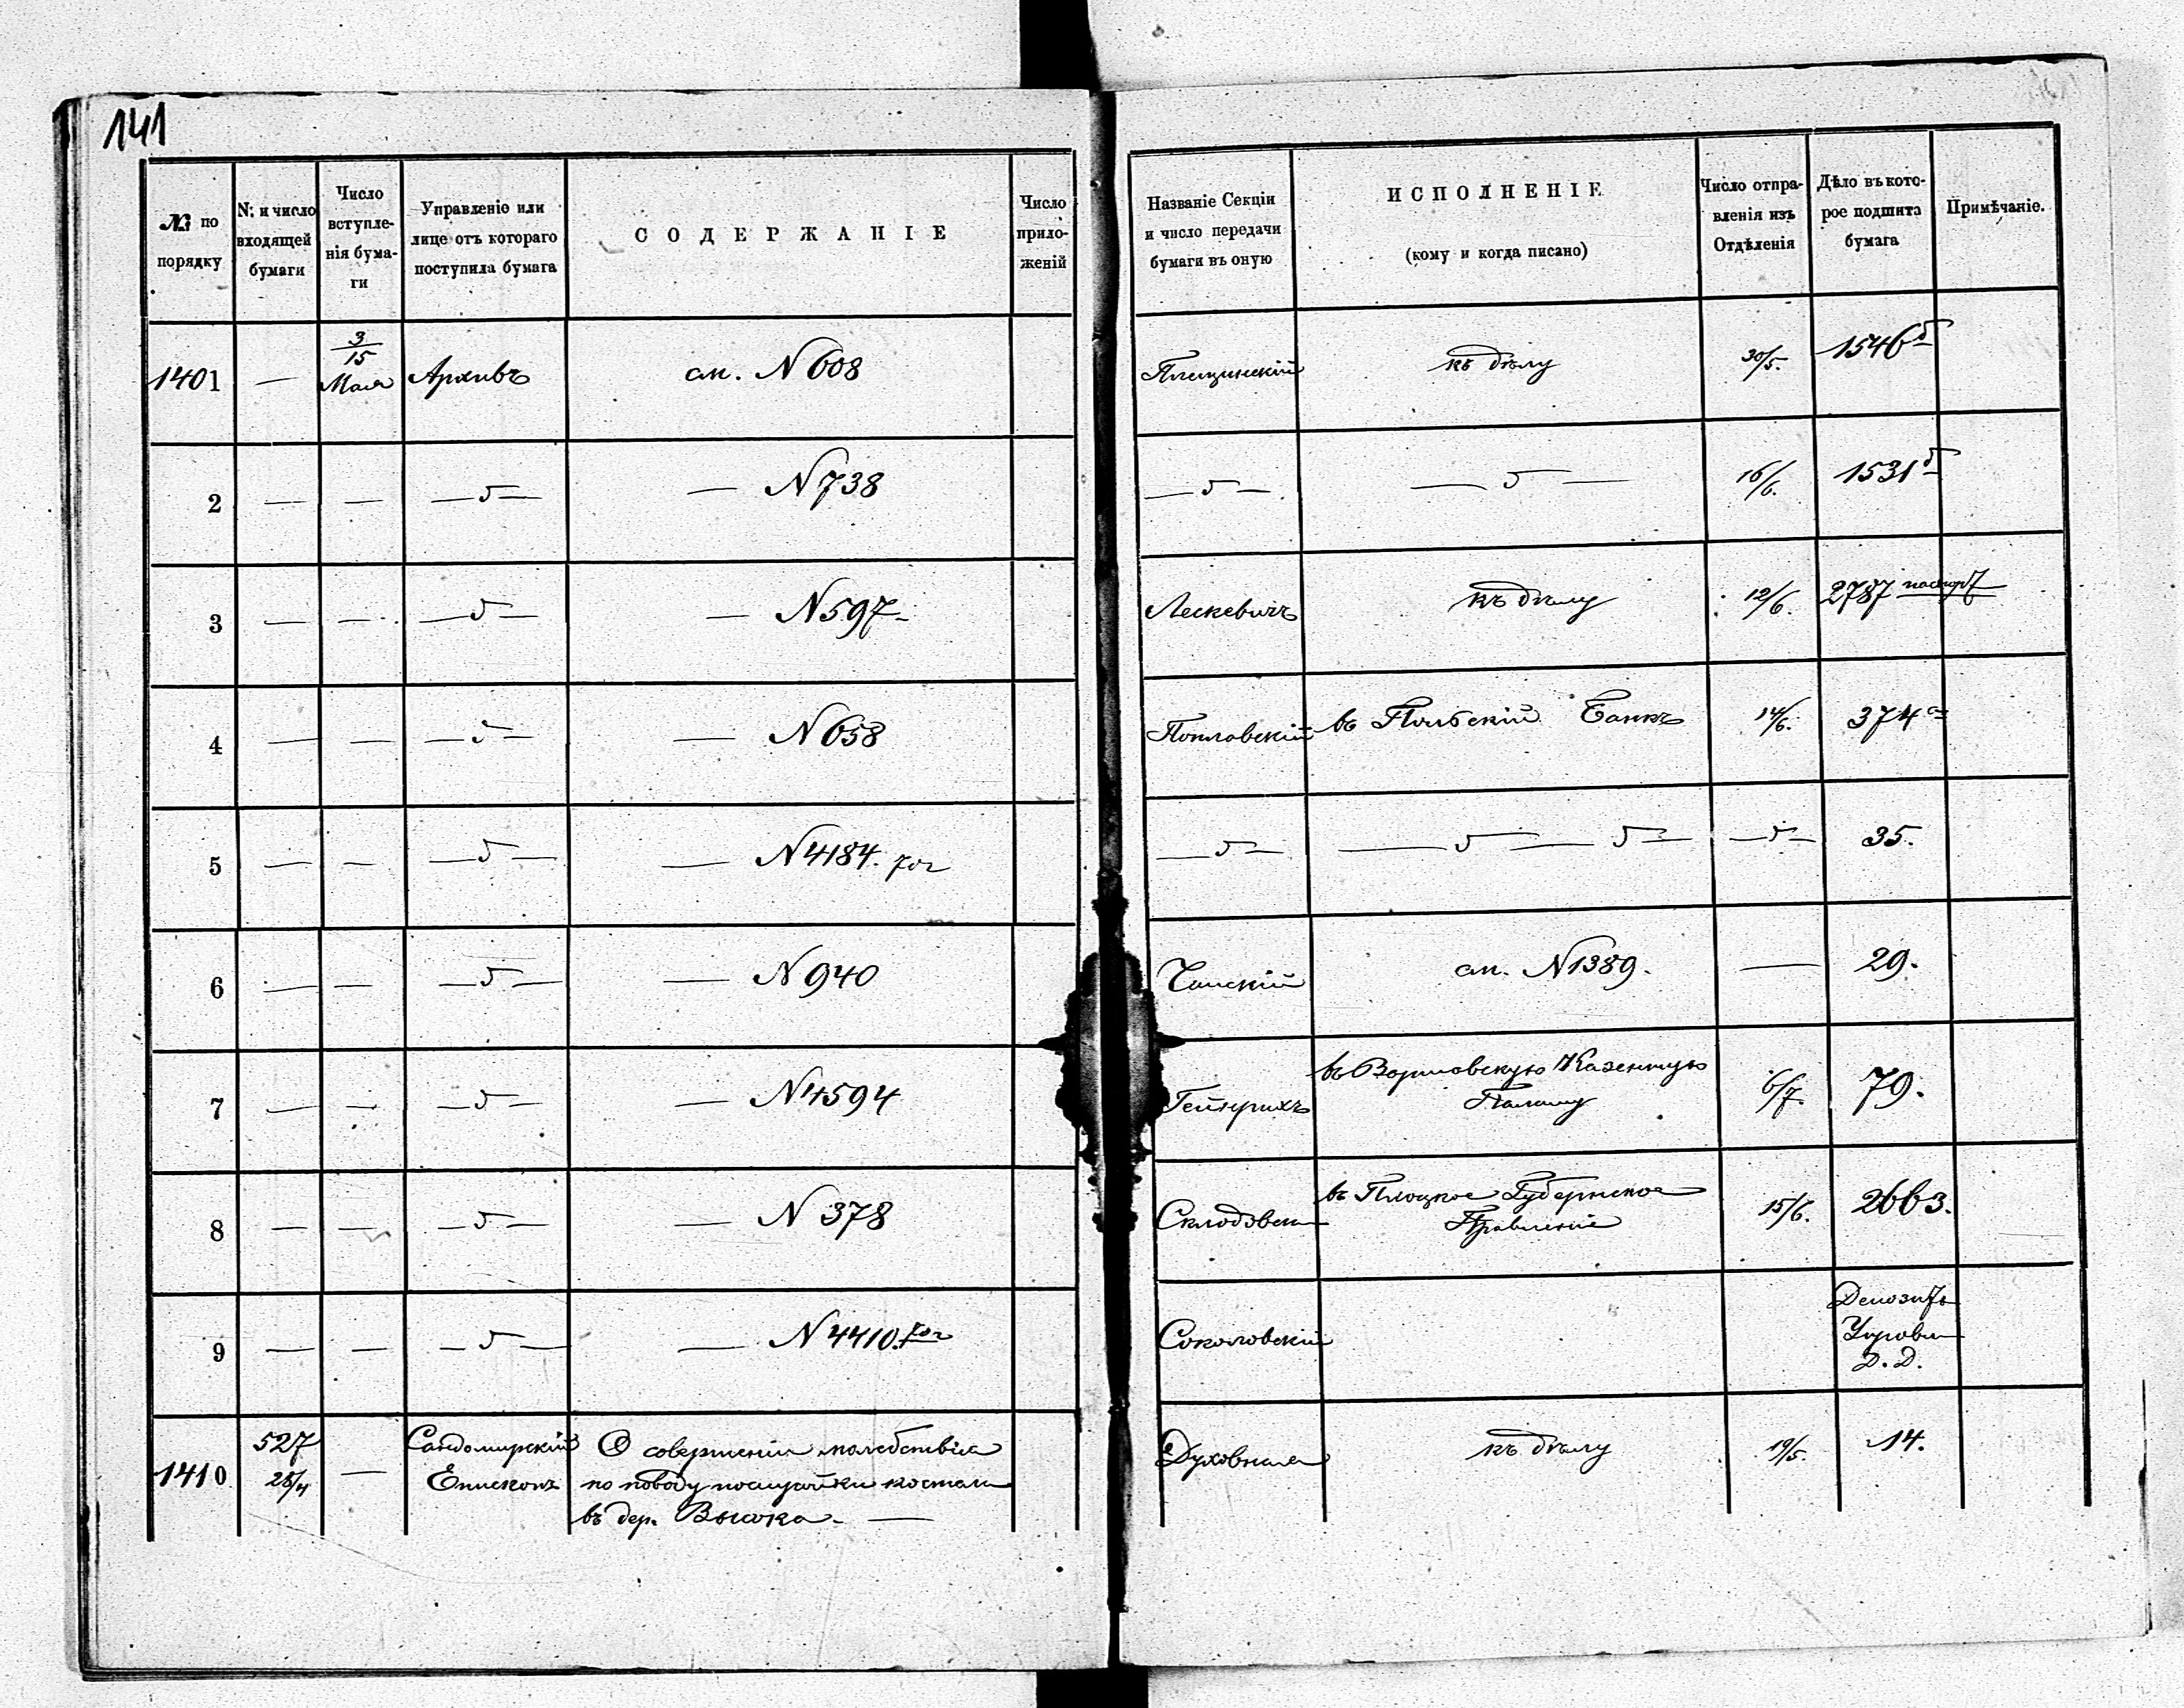 141
№ по порядку
N; и число входящей бумаги
Число вступле-нія бума-ги
Управленіо или лице отъ котораго поступила бумага
СОДЕРЖАНІЕ
Число прило-женій
Названіе Секціи и число передачи бумаги въ оную
ИСПОЛНЕНІЕ
(кому и когда писано)
Число отпра-вленія изъ Отдѣленія
Дѣло въ кото-рое подшита бумага
Примѣчаніе.
1401 — 3/15 Мая Архивъ см. N 608 къ дѣлу 30/5. 1546 б
2 — — — " — — N 738 — " — — " — 16/6. 1531 б
3 — — — " — — N 597 Лескевичъ къ дѣлу 12/6. 2787
4 — — — " — — N 658 Поплавскій въ Польскій Банкъ 14/6. 374
5 — — — " — — N 4184. — " — — " — " — — " — 35.
6 — — — " — — N 940 см. N 1389. — 29.
7 — — — " — — N 4594 Гейнрихъ въ Варшавскую Казенную Палату 6/7. 79.
8 — — — " — — N 378 въ Плоцкое Губернское Правленіе 15/6. 2663.
9 — — — " — — N 4410. Соколовскій Депозитъ Д. Д.
1410 527 28/4 — Сандомирскій Епископъ О совершеніи молебствія Духовная къ дѣлу 19/5. 14.
по поводу костела
въ дер. Высока. —